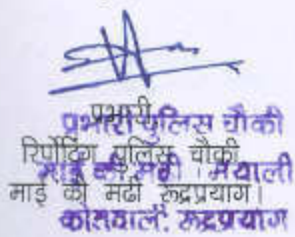 प्रभारी
प्रभारी पुलिस चौकी
रिपोर्टिंग पुलिस चौकी
माई की मढी । मयाली
माई की मढी रूद्रप्रयाग।
कोतवाली. रूद्रप्रयाग